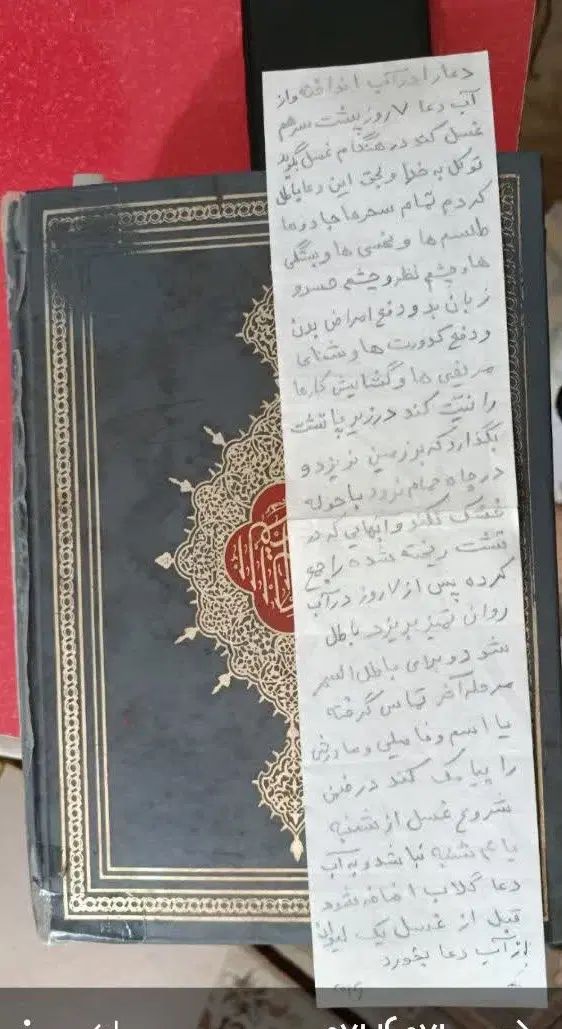 دعا را در آب انداخته و از
آب دعا ۷ روز پشت سر هم
غسل کند در هنگام غسل بگوید
توکل به خدا و بحق این دعا باطل
کردم تمام سحرها جادوها
طلسم ها و نحسی ها و بستگی
ها و چشم نظر و چشم حسد و
زبان بد و دفع امراض بدن
و دفع کدورت ها و شفای
مریضی ها و گشایش کارها
را نیت کند در زیر پا تشت
بگذارد که بر زمین نریزد و
در چاه حمام نرود با حوله
خشک کند و ابهایی که در
تشت ریخته شده را جمع
کرده پس از ۷ روز در آب
روان تمیز بریزد باطل
شود و برای باطل السحر
مرحله آخر تماس گرفته
یا اسم و فامیلی و مادرش
را پیامک کند در ضمن
شروع غسل از شنبه
یا ۳ شنبه نباشد و به آب
دعا گلاب اضافه شود
قبل از غسل یک لیوان
از آب دعا بخورد